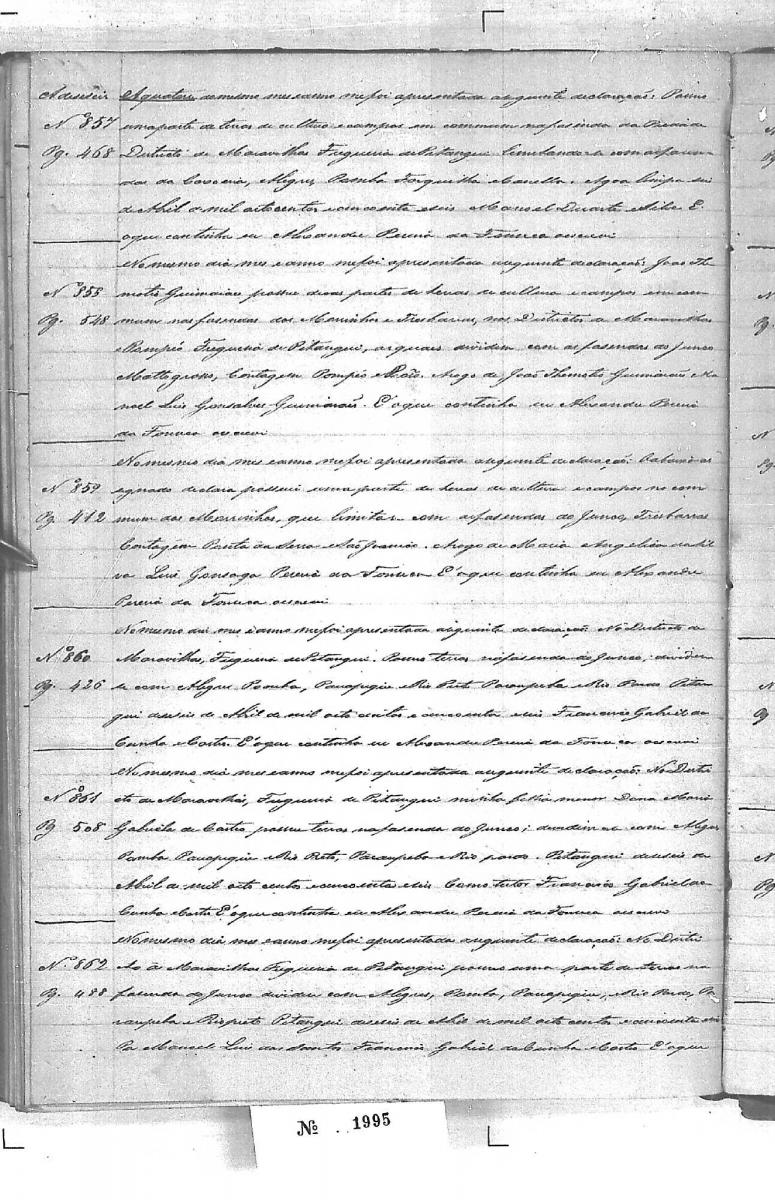 Adeseis
Nº 857
Pg. 468
do mesmo mes e anno me foi apresentada a seguinte declaração: Possuo
uma parte de terras de cultura e campos em commum na fasenda da
Districto de Maravilhas Freguesia de Pitangui limitando-se com as fasen-
das da Alegre, Pomba Forquilha Agoa limpa
de Abril de mil oito centos e cincoenta e seis Manoel Duarte E
o que continha eu Alexandre Pereira da Fonseca escrevi
No mesmo dia mes e anno me foi apresentada a seguinte declaração: João Thi-
Nº 858
Pg. 548
motio Guimarães possue duas partes de terras de cultura e campos em com-
mum nas fasendas dos Morrinhos e Tresbarras, nos Districtos de Maravilhas
e Pompéo Freguesia de Pitangui, as quaes dividem com as fasendas do Junco
Mattogrosso, Contagem Pompéo e Arogo de João Themotio Guimarães Ma-
noel Luis Gonsalves Guimarães. E o que continha eu Alexandre Pereira
da Fonseca escrevi
No mesmo dia mes e anno me foi apresentada a seguinte declaração: O abaixo as-
Nº 859
Pg. 412
signado declara possuir uma parte de terras de cultura e campos no com-
mum dos Morrinhos, que limitar com as fasendas do Junco, Tresbarras
Contagem Ponta da Serra e São Joanico. Arogo de Maria Angelica da Sil-
va Luis Gonsaga Pereira da Fonseca E o que continha eu Alexandre
Pereira da Fonseca escrevi
No mesmo dia mes e anno me foi apresentada a seguinte declaração No Districto de
Nº 860
Pg. 426
Maravilhas, Freguesia de Pitangui. Possuo terras na fasenda do Junco; dividem-
se com Alegre Pomba, Rio Preto Paraupeba e Rio Pardo Pitan-
gui deseseis de Abril de mil oito centos e cincoenta e seis Francisco Gabriel da
Cunha e Castro E o que continha eu Alexandre Pereira da Fonseca escrevi
No mesmo dia mes e anno me foi apresentada a seguinte declaração: No Distri-
Nº 861
Pg. 508
cto de Maravilhas, Freguesia de Pitangui minha filha menor Dona Maria
Gabriela de Castro possue terras na fasenda do Junco; dividem-se com Alegre
Pomba e Rio Preto, Paraupeba e Rio pardo. Pitangui deseseis de
Abril de mil oito centos e cincoenta e seis Como tutor Francisco Gabriel da
Cunha e Castro E o que continha eu Alexandre Pereira da Fonseca escrevi
No mesmo dia mes e anno me foi apresentada a seguinte declaração: No Distri-
Nº 862
Pg. 488
cto de Maravilhas Freguesia de Pitangui possuo uma parte de terras na
fasenda do Junco dividem com Alegre, Pomba, Rio Pardo, Pa-
raupeba e Rio preto Pitangui deseseis de Abril de mil oito centos e cincoenta e seis
Por Manoel Luis dos Santos Francisco Gabriel da Cunha e Castro E o que
Nº 1995